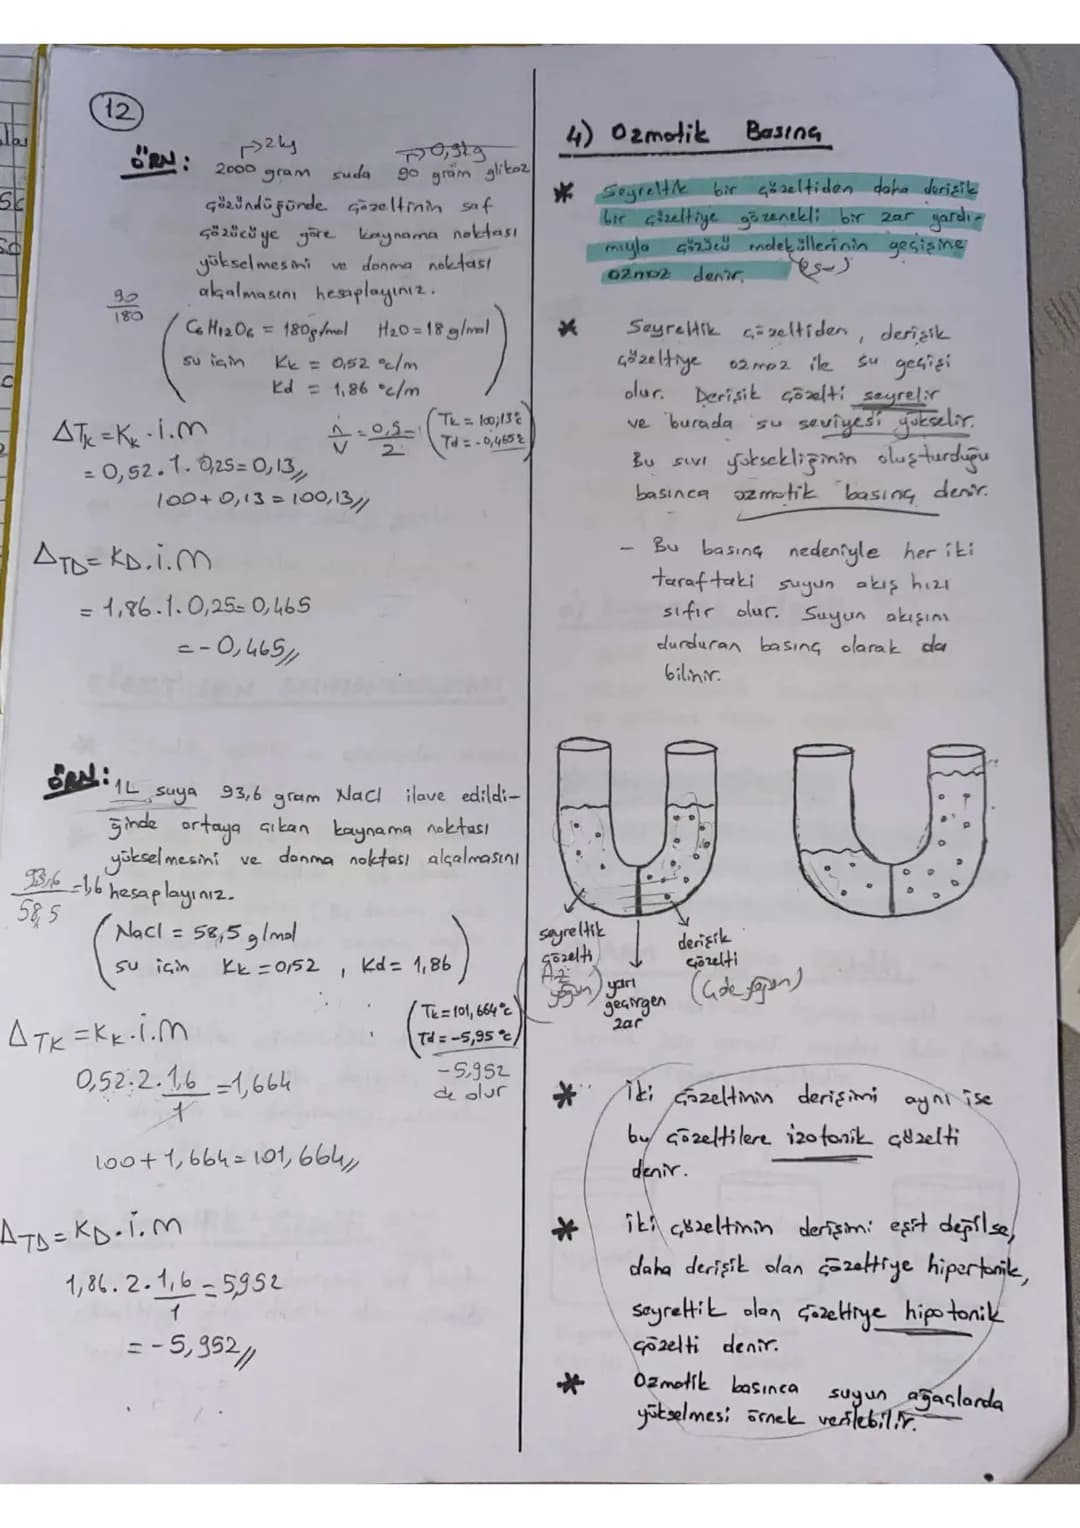 12
ÖRN:
→2kg
→0,9kg
2000 gram suda 90 gram glikoz
çözündüğünde çözeltinin saf
çözücüye göre kaynama noktası
yükselmesini ve donma noktası
alçalmasını hesaplayınız.
90
180
C6H12O6 = 180g/mol H2O = 18 g/mol
su için Kk = 0,52 °c/m
Kd = 1,86 °c/m
ΔTK = KK . i . m
n/V = 0,5/2
(Tk = 100,13°c
Td = -0,465°c)
= 0,52 . 1 . 0,25 = 0,13//
100 + 0,13 = 100,13//
ΔTD = KD . i . m
= 1,86 . 1 . 0,25 = 0,465
= -0,465//
ÖRN: 1L suya 93,6 gram NaCl ilave edildi-
ğinde ortaya çıkan kaynama noktası
yükselmesini ve donma noktası alçalmasını
hesaplayınız.
93,6/58,5 = 1,6
(NaCl = 58,5 g/mol
su için Kk = 0,52 , Kd = 1,86)
ΔTK = KK . i . m
(Tk = 101,664°c
Td = -5,95°c)
0,52 . 2 . 1,6/1 = 1,664
-5,952
de olur
100 + 1,664 = 101,664//
ΔTD = KD . i . m
1,86 . 2 . 1,6/1 = 5,952
= -5,952//
4) Ozmotik Basınç
* Seyreltik bir çözeltiden daha derişik
bir çözeltiye gözenekli bir zar yardı-
mıyla çözücü moleküllerinin geçişine
ozmoz denir.
(su)
* Seyreltik çözeltiden, derişik
çözeltiye ozmoz ile su geçişi
olur. Derişik çözelti seyrelir
ve burada su seviyesi yükselir.
Bu sıvı yüksekliğinin oluşturduğu
basınca ozmotik basınç denir.
- Bu basınç nedeniyle her iki
taraftaki suyun akış hızı
sıfır olur. Suyun akışını
durduran basınç olarak da
bilinir.
seyreltik
çözelti
(Az
yoğun)
yarı
geçirgen
zar
derişik
çözelti
(Çok yoğun)
* İki çözeltinin derişimi aynı ise
bu çözeltilere izotonik çözelti
denir.
* İki çözeltinin derişimi eşit değilse,
daha derişik olan çözeltiye hipertonik,
seyreltik olan çözeltiye hipotonik
çözelti denir.
* Ozmotik basınca suyun ağaçlarda
yükselmesi örnek verilebilir.